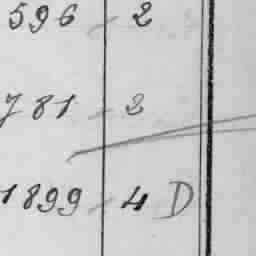 596 - 2
781 - 2
1899 - 4 D